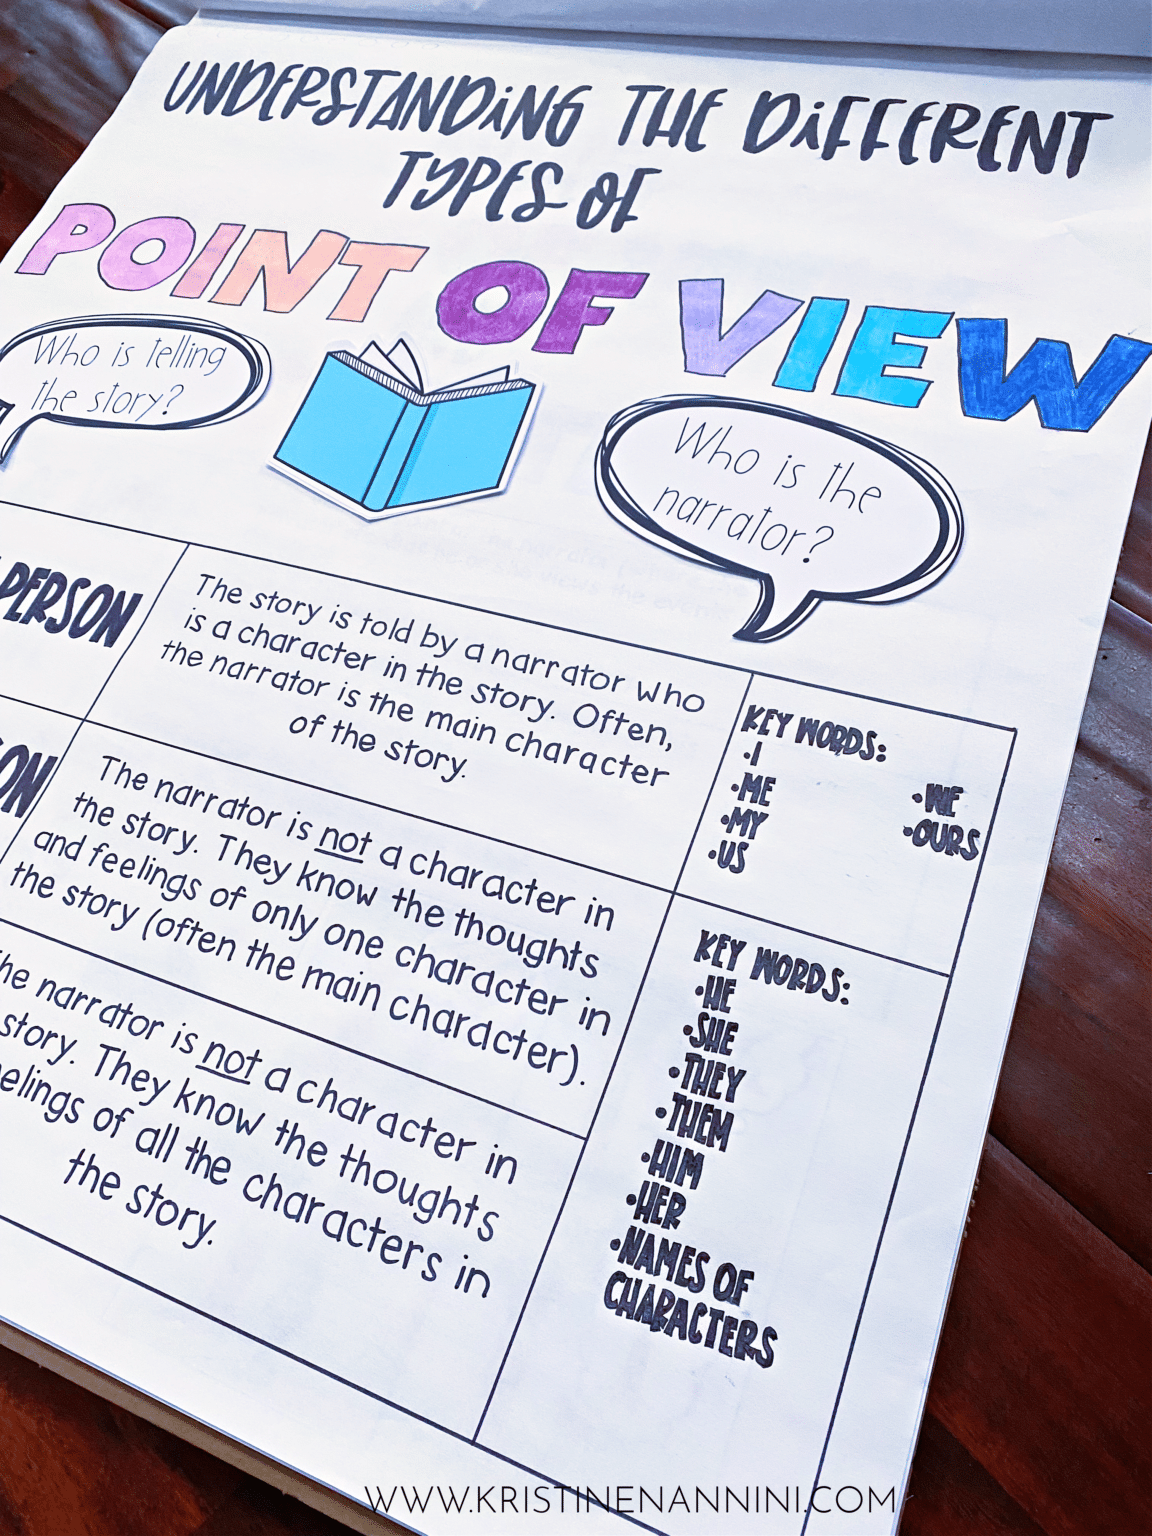 UNDERSTANDING THE DIFFERENT
TYPES OF
POINT OF VIEW
Who is telling
the story?
Who is the
narrator?
PERSON
The story is told by a narrator who
is a character in the story. Often,
the narrator is the main character
of the story.
KEY WORDS:
•I
•ME
•MY
•US
•WE
•OURS
The narrator is not a character in
the story. They know the thoughts
and feelings of only one character in
the story (often the main character).
narrator is not a character in
story. They know the thoughts
of all the characters in
the story.
KEY WORDS:
•HE
•SHE
•THEY
•THEM
•HIM
•HER
•NAMES OF
CHARACTERS
WWW.KRISTINENANNINI.COM